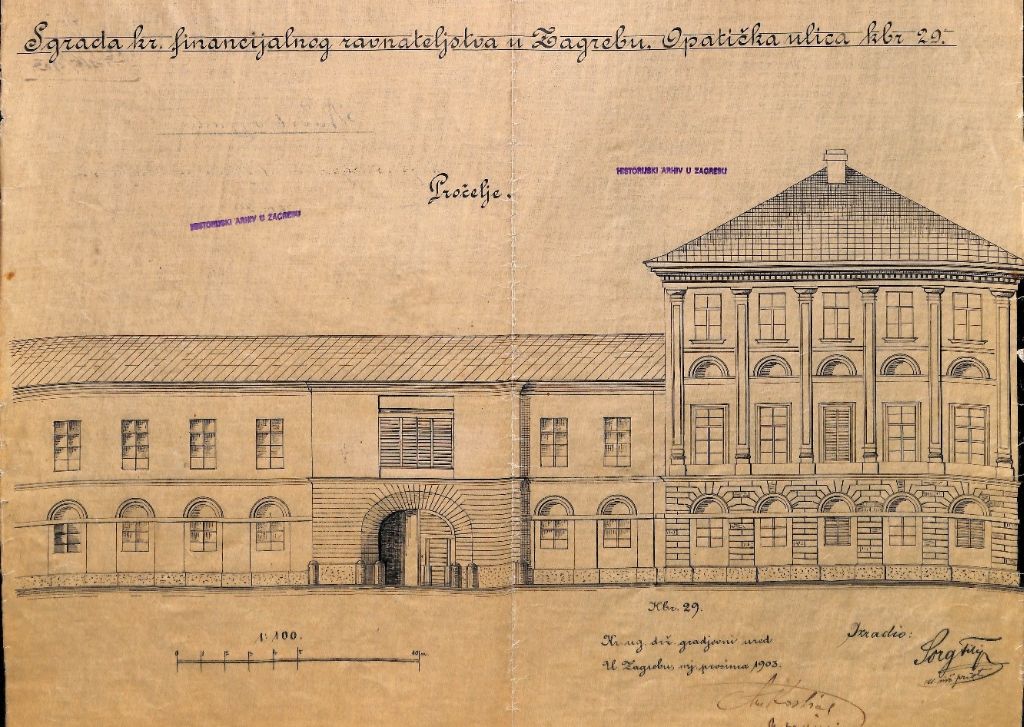 Sgrada kr. financijalnog ravnateljstva u Zagrebu. Opatička ulica kbr 29.
HISTORIJSKI ARHIV U ZAGREBU
Pročelje.
HISTORIJSKI ARHIV U ZAGREBU
Kbr. 29.
1:100.
10 m
Kr. ug. drž. gradjevni ured
U Zagrebu, mj. prosinca 1903.
Izradio: